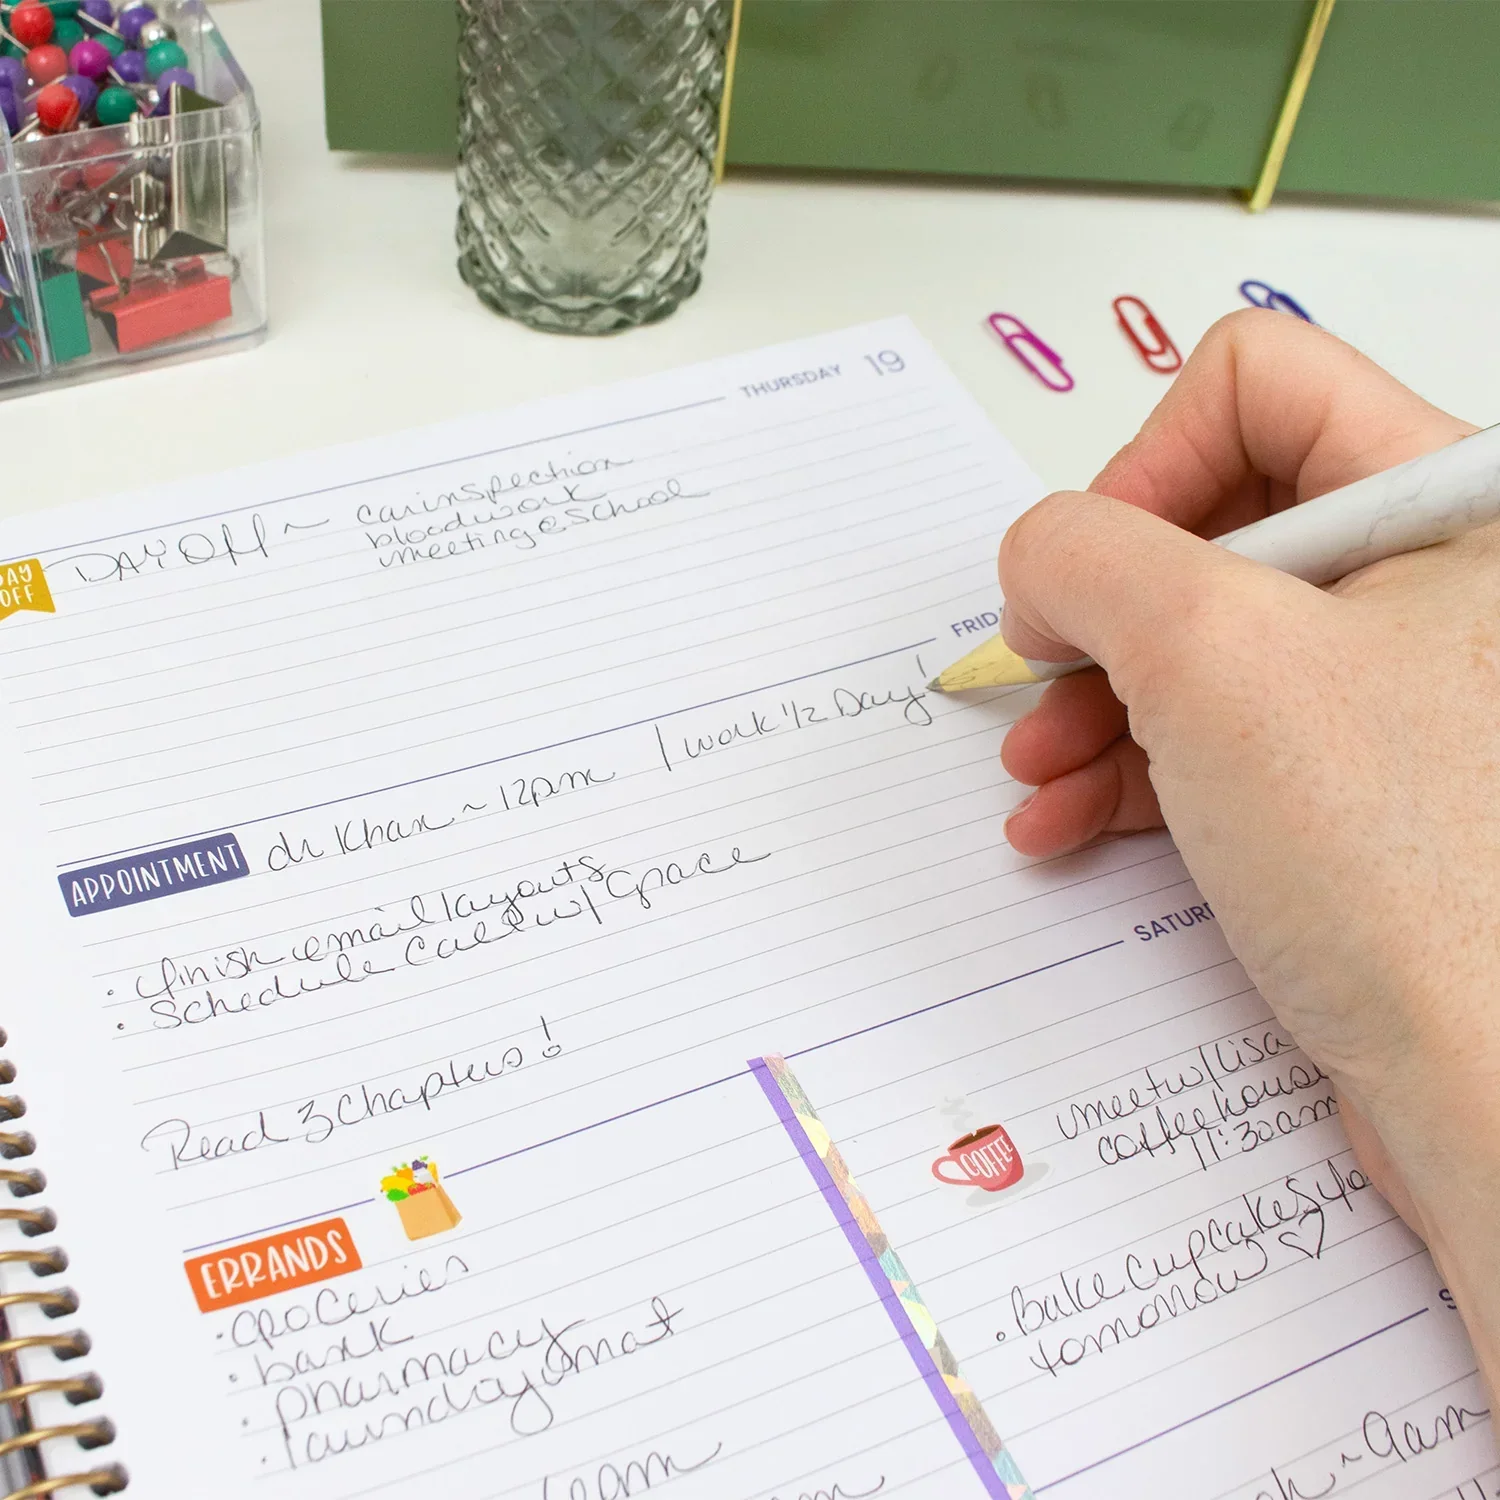 THURSDAY 19
DAY OFF
DAY Off ~ car inspection
bloodwork
meeting @ school
FRIDA
APPOINTMENT dr Khan ~ 12pm / work 1/2 Day!
· finish email layouts
· Schedule Call w/ Grace
Read 3 Chapters!
ERRANDS
· groceries
· bank
· pharmacy
· laundrymat
SATUR
COFFEE
meet w/ Lisa
coffee hous
11:30am
· Bake Cupcakes fo
tomorrow ♡
S
~ 9am